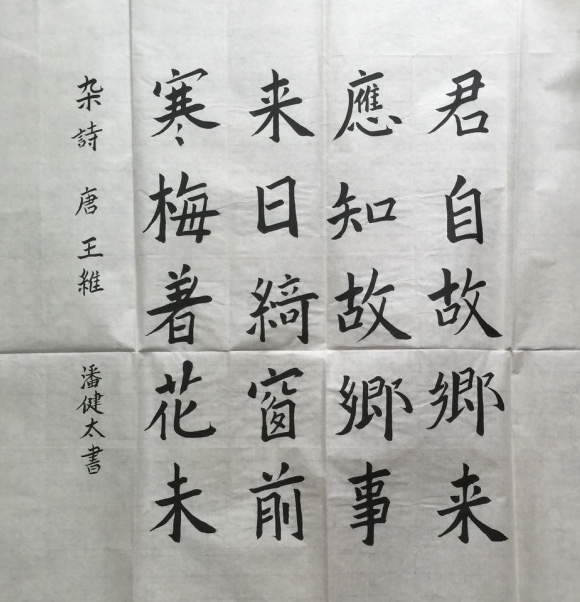 君自故鄉来
應知故鄉事
来日綺窗前
寒梅着花未
杂詩 唐 王維
潘健太書